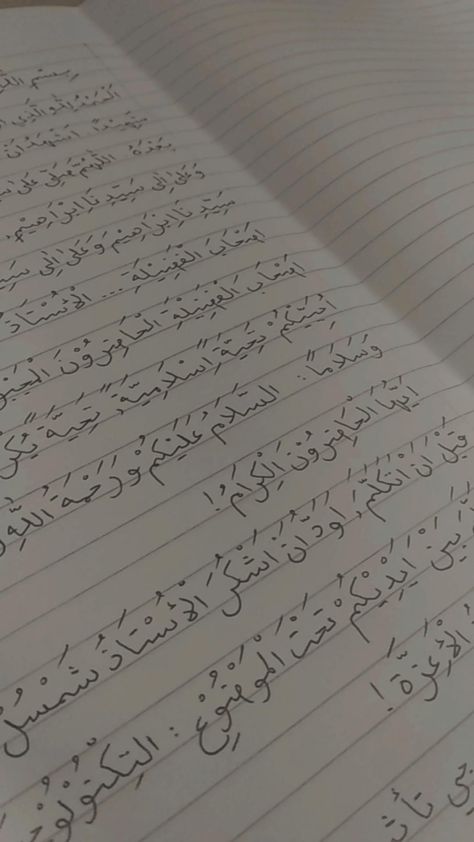 بِسْمِ اللّٰهِ
اَلْحَمْدُ لِلّٰهِ الَّذِي
شَهِيْدًا اَشْهَدُ اَنْ
بَعْدَهُ اَللّٰهُمَّ صَلِّ عَلَى
وَعَلَى اٰلِ سَيِّدِنَا اِبْرَاهِيْمَ،
سَيِّدِنَا اِبْرَاهِيْمَ وَعَلَى اٰلِ
اَصْحَابَ الْفَضِيْلَةِ... اَلْأُسْتَاذَ
اَصْحَابَ الْفَضِيْلَةِ الْحَاضِرُوْنَ
اُحَيِّيْكُمْ تَحِيَّةً اِسْلَامِيَّةً، تَحِيَّةً
وَسَلَامًا: اَلسَّلَامُ عَلَيْكُمْ وَرَحْمَةُ اللّٰهِ
اَيُّهَا الْحَاضِرُوْنَ الْكِرَامُ!
قَبْلَ اَنْ اَتَكَلَّمَ، اَوَدُّ اَنْ اَشْكُرَ الْأُسْتَاذَ شَمْسُ
بَيْنَ اَيْدِيْكُمْ تَحْتَ الْمَوْضُوْعِ: اَلتِّكْنُوْلُوْجِ
الْأَعِزَّةُ!